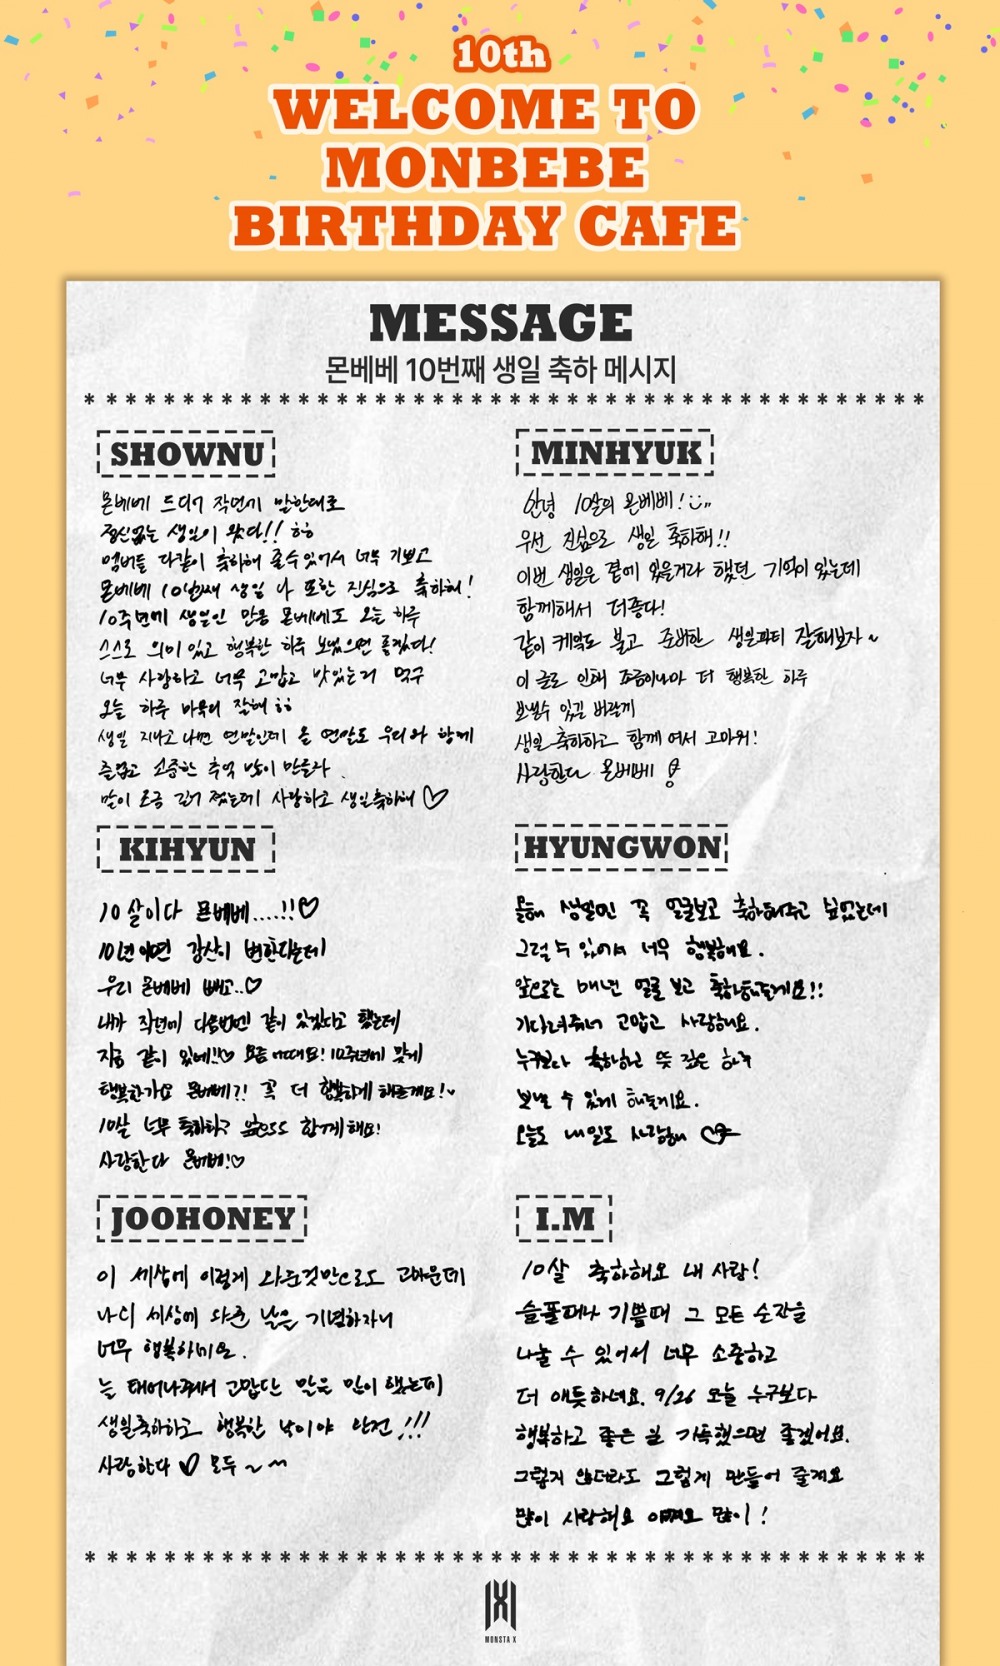 10th
WELCOME TO
MONBEBE
BIRTHDAY CAFE
MESSAGE
몬베베 10번째 생일 축하 메시지
SHOWNU
몬베베 드디어 작년에 말한대로
정신없는 생일이 왔다!! ㅎㅎ
멤버들 다같이 축하해 줄수있어서 너무 기쁘고
몬베베 10번째 생일 나 또한 진심으로 축하해!
10주년에 생일인 만큼 몬베베도 오늘 하루
스스로 의미 있고 행복한 하루 보냈으면 좋겠다!
너무 사랑하고 너무 고맙고 맛있는거 먹구
오늘 하루 마무리 잘해 ㅎㅎ
생일 지나고 나면 연말인데 올 연말도 우리와 함께
즐겁고 소중한 추억 많이 만들자
말이 조금 길어 졌는데 사랑하고 생일축하해 ♡
MINHYUK
안녕 10살의 몬베베!
우선 진심으로 생일 축하해!!
이번 생일은 곁에 있을거라 했던 기억이 있는데
함께해서 더좋다!
같이 케익도 불고 준비한 생일파티 잘해보자~
이 글로 인해 조금이나마 더 행복한 하루
보낼수 있길 바랄게
생일 축하하고 함께 여서 고마워!
사랑한다 몬베베
KIHYUN
10살이다 몬베베....!!♡
10년이면 강산이 변한다는데
우리 몬베베 빼고..♡
내가 작년에 다음번엔 같이 있겠다고 했는데
지금 같이 있네!!♡ 요즘 어때요! 10주년에 맞게
행복한가요 몬베베?! 꼭 더 행복하게 해줄게요!
10살 너무 축하하구 앞으로도 함께해요!
사랑한다 몬베베!♡
HYUNGWON
올해 생일엔 꼭 얼굴보고 축하해주고 싶었는데
그럴 수 있어서 너무 행복해요.
앞으로는 매년 얼굴 보고 축하해줄게요!!
기다려줘서 고맙고 사랑해요.
누구보다 축하하고 뜻 깊은 하루
보낼 수 있게 해줄게요.
오늘도 내일도 사랑해
JOOHONEY
이 세상에 이렇게 와준것만으로도 고마운데
나의 세상에 와준 날을 기념하자니
너무 행복하네요.
늘 태어나줘서 고맙단 말은 많이 했는데
생일축하하고 행복한 날이야 완전 !!!
사랑한다 ♡ 모두 ~
I.M
10살 축하해요 내 사랑!
슬플때나 기쁠때 그 모든 순간을
나눌 수 있어서 너무 소중하고
더 애틋하네요. 9/26 오늘 누구보다
행복하고 좋은 일 가득했으면 좋겠어요.
그렇지 않더라도 그렇게 만들어 줄게요
많이 사랑해요 많이!
MONSTA X